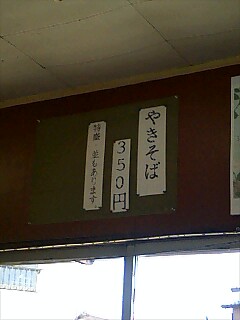 やきそば
350円
特盛・並もあります。